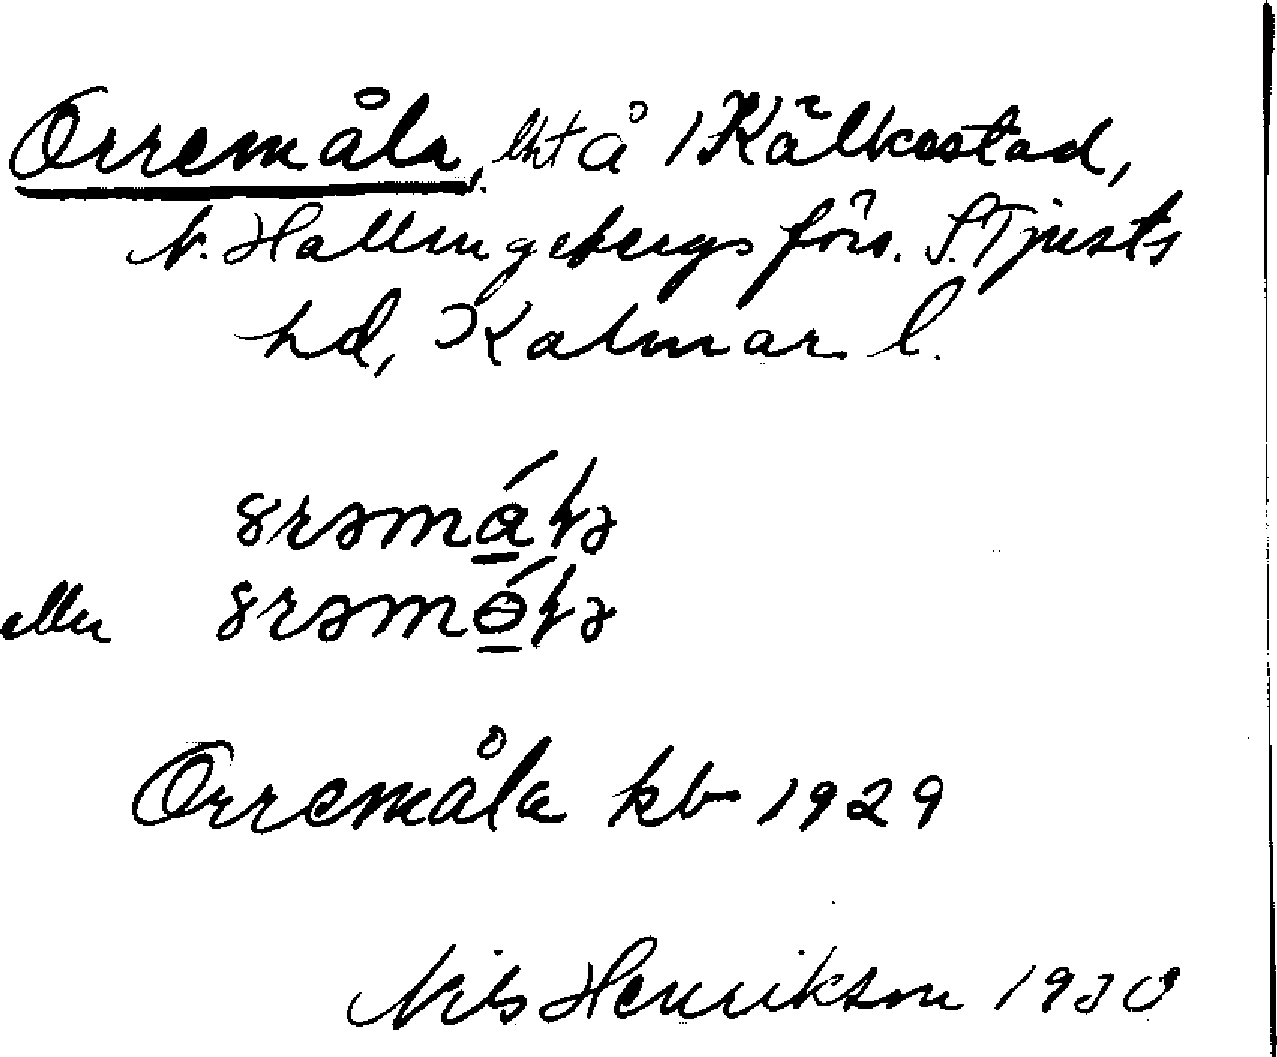 Orremåla, lht å 1 Kälkestad,
N. Hallingebergs förs. S. Tjusts
hd, Kalmar l.
eller
Orremåla kb 1929
Nils Henrikson 1930